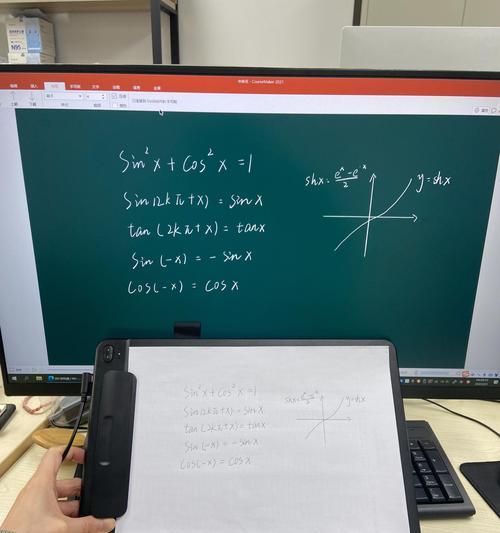 CourseMaker 2021
sin²x + cos²x = 1
sin(2kπ+x) = sinx
tan(2kπ+x) = tanx
sin(-x) = -sinx
cos(-x) = cosx
shx = (eˣ-e⁻ˣ)/2
y = shx
sin²x + cos²x = 1
sin(2kπ+x) = sinx
tan(2kπ+x) = tanx
sin(-x) = -sinx
cos(-x) = cosx
shx = (eˣ-e⁻ˣ)/2
y = shx
N95